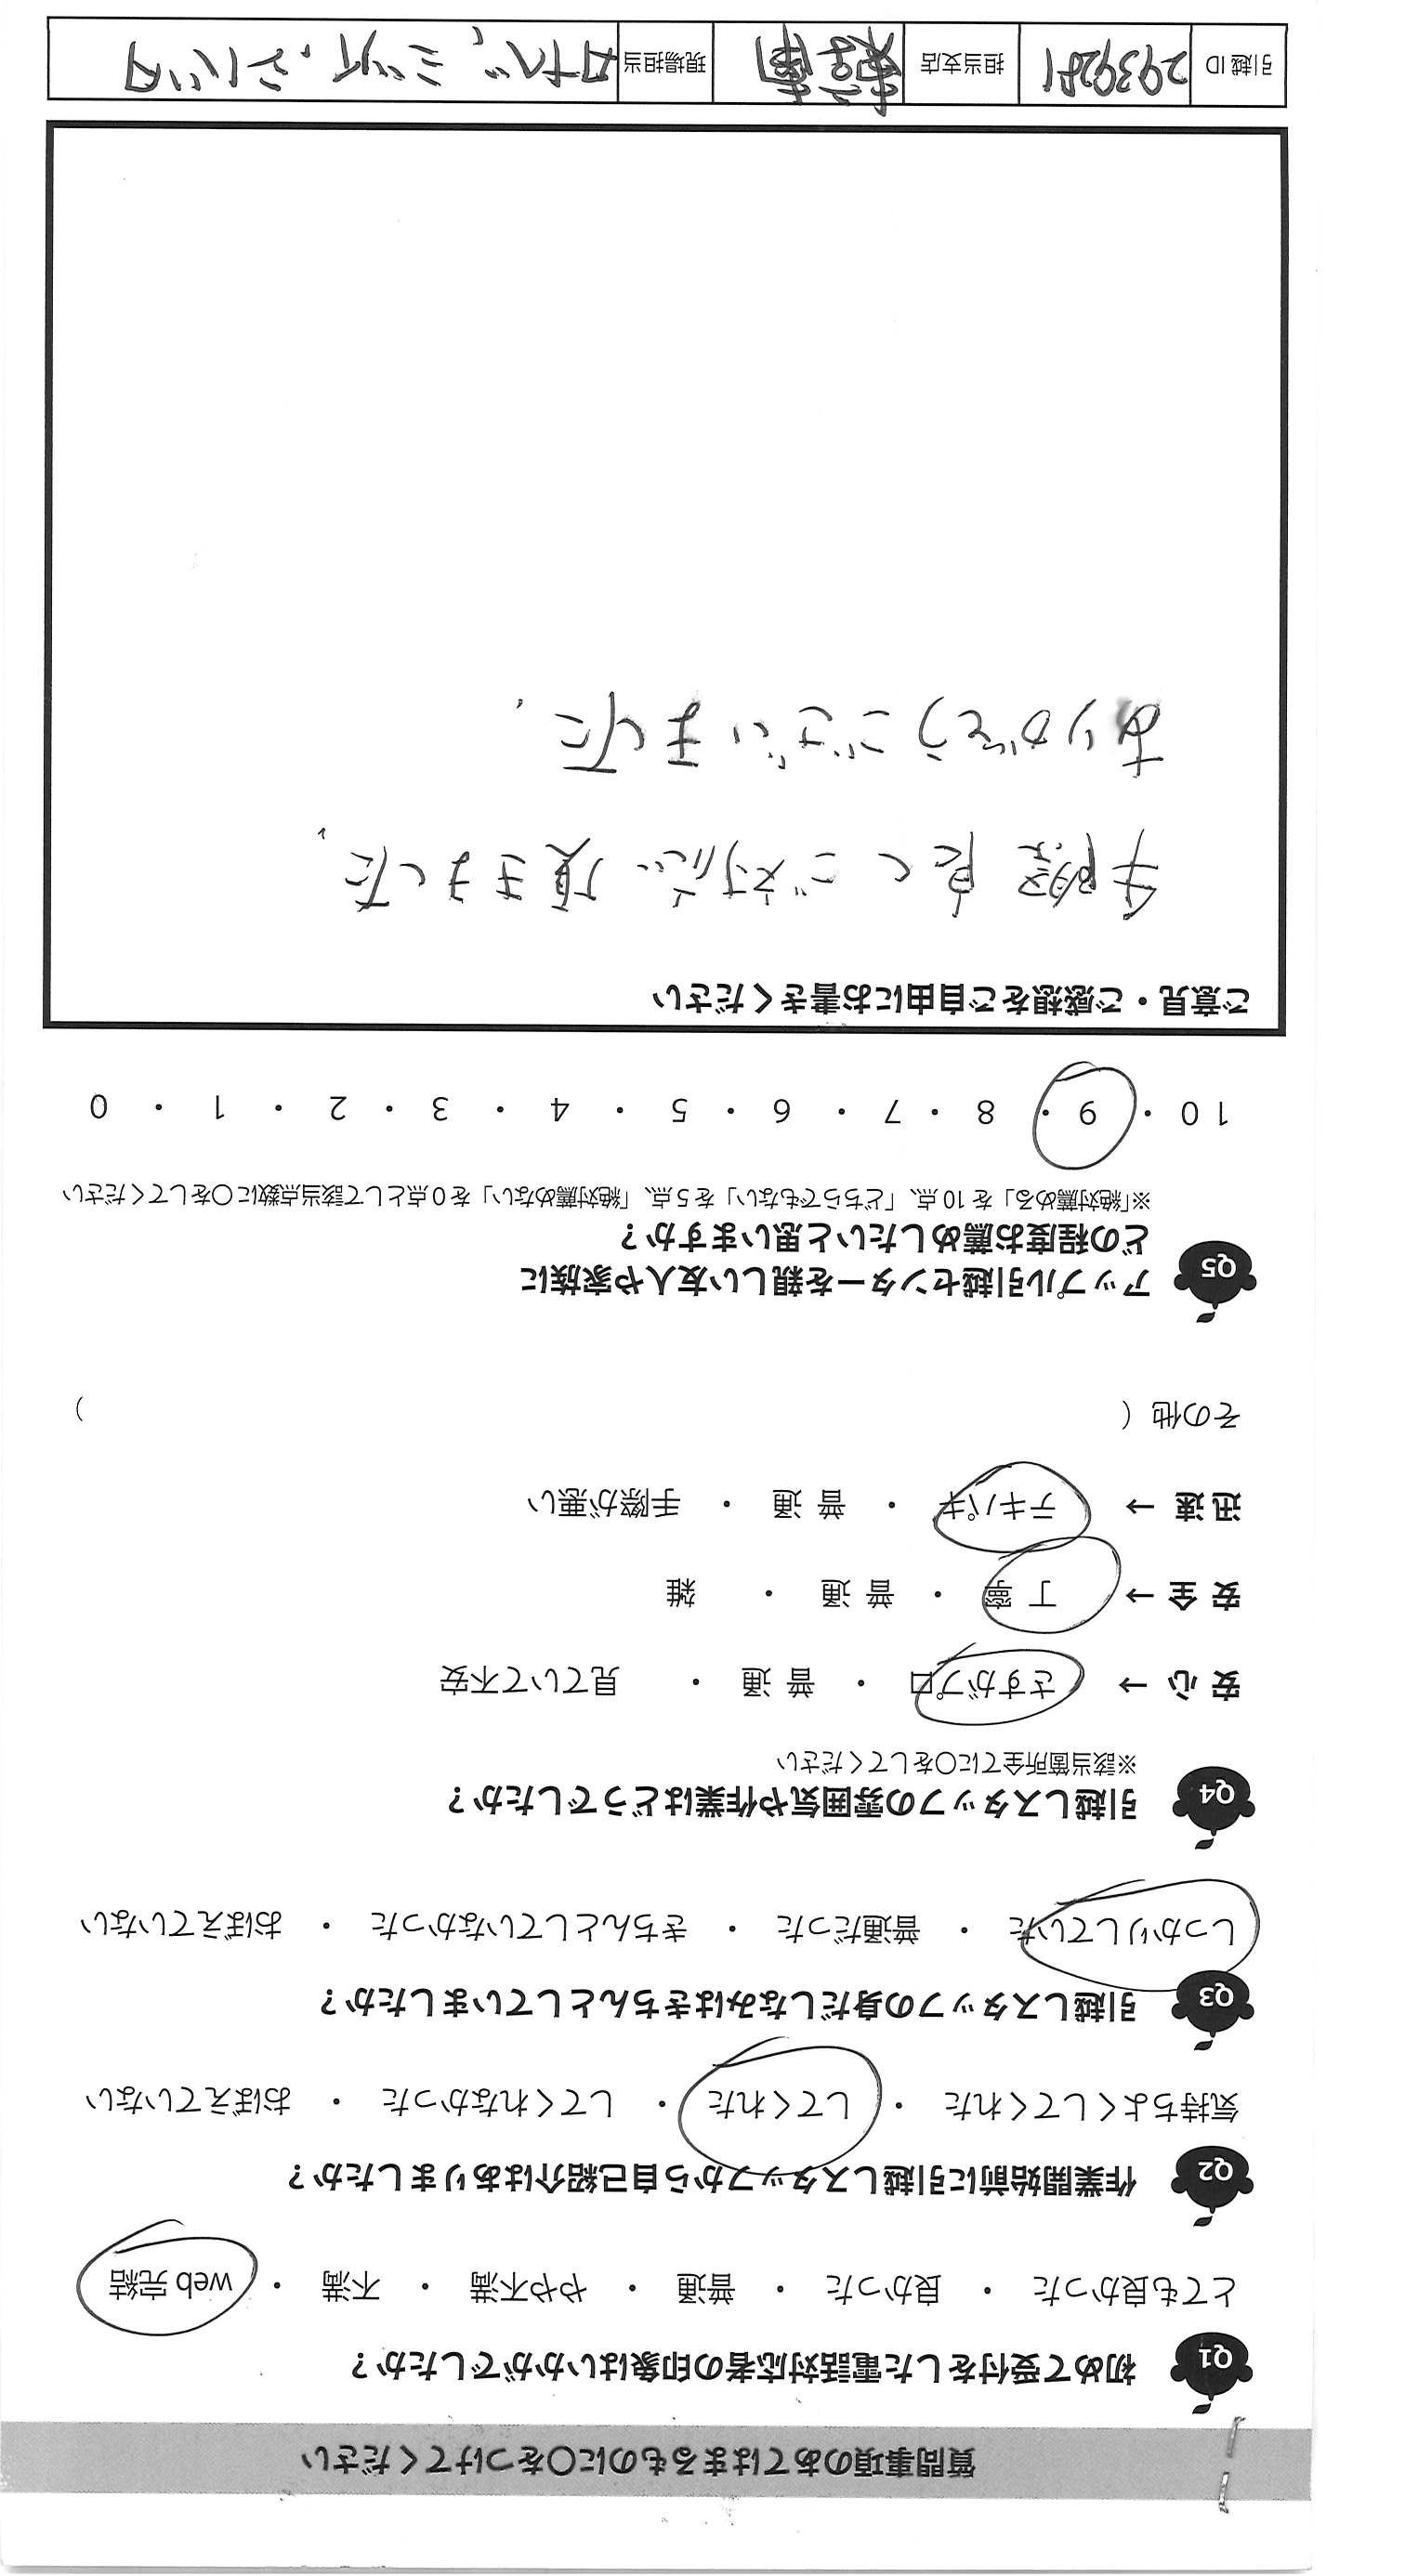 質問事項のあてはまるものに〇をつけてください
Q1 初めて受付をした電話対応者の印象はいかがでしたか？
とても良かった ・ 良かった ・ 普通 ・ やや不満 ・ 不満 ・ web 完結
Q2 作業開始前に引越しスタッフから自己紹介はありましたか？
気持ちよくしてくれた ・ してくれた ・ してくれなかった ・ おぼえていない
Q3 引越しスタッフの身だしなみはきちんとしていましたか？
しっかりしていた ・ 普通だった ・ きちんとしていなかった ・ おぼえていない
Q4 引越しスタッフの雰囲気や作業はどうでしたか？
※該当箇所全てに〇をしてください
安心 → さすがプロ ・ 普通 ・ 見ていて不安
安全 → 丁寧 ・ 普通 ・ 雑
迅速 → テキパキ ・ 普通 ・ 手際が悪い
その他（ ）
Q5 アップル引越センターを親しい友人や家族に
どの程度お薦めしたいと思いますか？
※「絶対薦める」を10点、「どちらでもない」を5点、「絶対薦めない」を0点として該当点数に〇をしてください
10 ・ 9 ・ 8 ・ 7 ・ 6 ・ 5 ・ 4 ・ 3 ・ 2 ・ 1 ・ 0
ご意見・ご感想をご自由にお書きください
手際良くご対応頂きました、
ありがとうございました.
引越ID 2939251 担当支店 現場担当